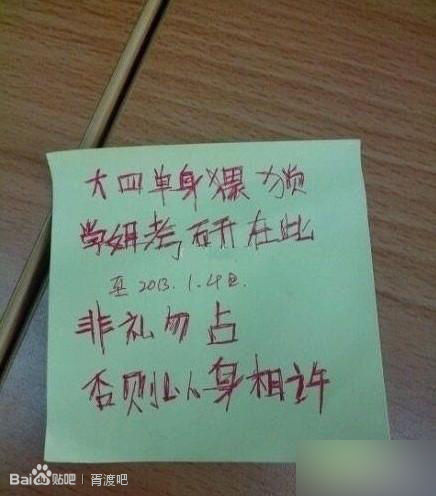 大四单身猥琐
学姐考研在此
至 2013.1.4日
非礼勿占
否则以身相许
Bai贴吧 | 胥渡吧